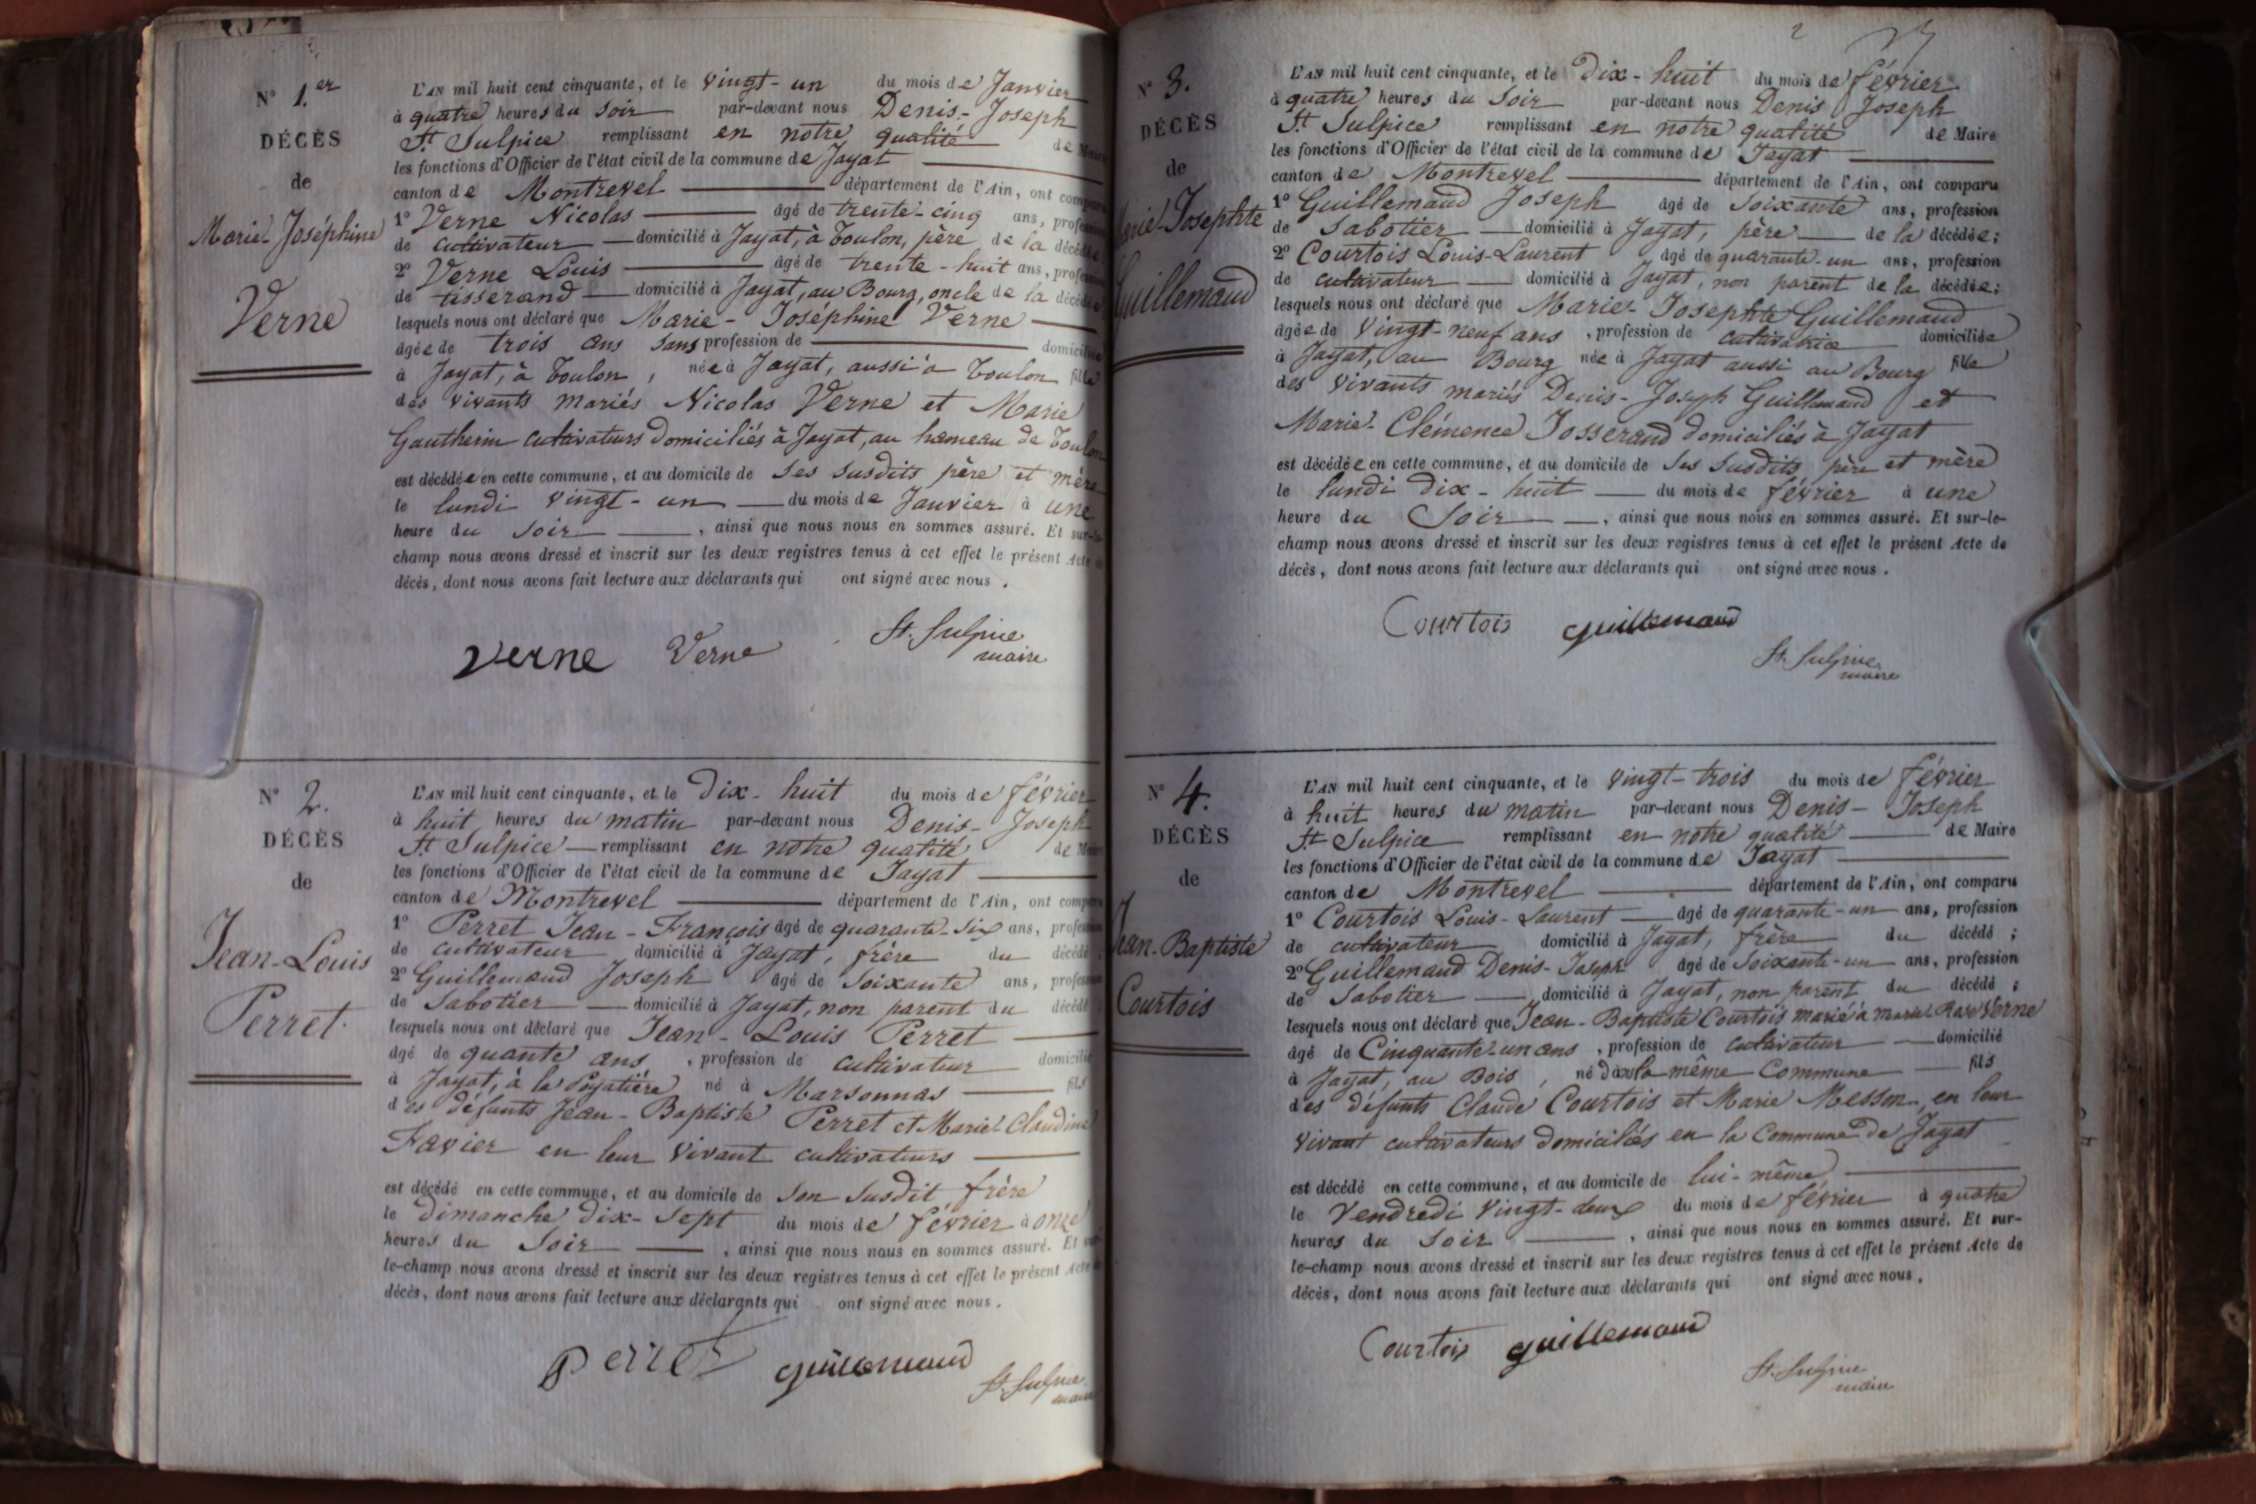 N° 1.er
DÉCÈS
de
Marie Joséphine
Verne
L'AN mil huit cent cinquante, et le vingt-un du mois de Janvier
à quatre heures du soir par-devant nous Denis-Joseph
St. Sulpice remplissant en notre qualité de Maire
les fonctions d'Officier de l'état civil de la commune de Jayat
canton de Montrevel département de l'Ain, ont comparu
1° Verne Nicolas âgé de trente-cinq ans, profession
de cultivateur domicilié à Jayat, à Toulon, père de la décédée
2° Verne Louis âgé de trente-huit ans, profession
de tisserand domicilié à Jayat, au Bourg, oncle de la décédée
lesquels nous ont déclaré que Marie-Josephine Verne
âgée de trois ans sans profession de domiciliée
à Jayat, à Toulon, née à Jayat, aussi à Toulon fille
des vivants mariés Nicolas Verne et Marie
Gautherin cultivateurs domiciliés à Jayat, au hameau de Toulon
est décédée en cette commune, et au domicile de ses susdits père et mère
le lundi vingt-un du mois de Janvier à une
heure du soir, ainsi que nous nous en sommes assuré. Et sur-le-
champ nous avons dressé et inscrit sur les deux registres tenus à cet effet le présent Acte de
décès, dont nous avons fait lecture aux déclarants qui ont signé avec nous.
Verne Verne St. Sulpice
maire
N° 2.
DÉCÈS
de
Jean-Louis
Perret.
L'AN mil huit cent cinquante, et le dix-huit du mois de février
à huit heures du matin par-devant nous Denis-Joseph
St. Sulpice remplissant en notre qualité de Maire
les fonctions d'Officier de l'état civil de la commune de Jayat
canton de Montrevel département de l'Ain, ont comparu
1° Perret Jean-François âgé de quarante-six ans, profession
de cultivateur domicilié à Jayat, frère du décédé;
2° Guillemaud Joseph âgé de soixante ans, profession
de Sabotier domicilié à Jayat, non parent du décédé
lesquels nous ont déclaré que Jean-Louis Perret
âgé de quante ans, profession de cultivateur domicilié
à Jayat, à la Poyatière né à Marsonnas fils
des défunts Jean-Baptiste Perret et Marie Claudine
Favier en leur vivant cultivateurs
est décédé en cette commune, et au domicile de son susdit frère
le dimanche dix-sept du mois de février à onze
heures du soir, ainsi que nous nous en sommes assuré. Et sur-
le-champ nous avons dressé et inscrit sur les deux registres tenus à cet effet le présent Acte de
décès, dont nous avons fait lecture aux déclarants qui ont signé avec nous.
Perret guillemaud St. Sulpice
maire
2
N° 3.
DÉCÈS
de
Marie-Josephte
Guillemaud
L'AN mil huit cent cinquante, et le dix-huit du mois de février
à quatre heures du soir par-devant nous Denis Joseph
St. Sulpice remplissant en notre qualité de Maire
les fonctions d'Officier de l'état civil de la commune de Jayat
canton de Montrevel département de l'Ain, ont comparu
1° Guillemaud Joseph âgé de soixante ans, profession
de Sabotier domicilié à Jayat, père de la décédée;
2° Courtois Louis-Laurent âgé de quarante-un ans, profession
de cultivateur domicilié à Jayat, non parent de la décédée;
lesquels nous ont déclaré que Marie-Josephte Guillemaud
âgée de vingt-neuf ans, profession de cultivatrice domiciliée
à Jayat, au Bourg née à Jayat aussi au Bourg fille
des vivants mariés Denis-Joseph Guillemaud et
Marie-Clémence Josserand domiciliés à Jayat
est décédée en cette commune, et au domicile de ses susdits père et mère
le lundi dix-huit du mois de février à une
heure du Soir, ainsi que nous nous en sommes assuré. Et sur-le-
champ nous avons dressé et inscrit sur les deux registres tenus à cet effet le présent Acte de
décès, dont nous avons fait lecture aux déclarants qui ont signé avec nous.
Courtois guillemaud
St. Sulpice
maire
N° 4.
DÉCÈS
de
Jean-Baptiste
Courtois
L'AN mil huit cent cinquante, et le vingt-trois du mois de février
à huit heures du matin par-devant nous Denis-Joseph
St. Sulpice remplissant en notre qualité de Maire
les fonctions d'Officier de l'état civil de la commune de Jayat
canton de Montrevel département de l'Ain, ont comparu
1° Courtois Louis-Laurent âgé de quarante-un ans, profession
de cultivateur domicilié à Jayat, frère du décédé;
2° Guillemaud Denis-Joseph âgé de soixante-un ans, profession
de Sabotier domicilié à Jayat, non parent du décédé;
lesquels nous ont déclaré que Jean-Baptiste Courtois marié à marie Rose Verne
âgé de Cinquante-un ans, profession de cultivateur domicilié
à Jayat, au Bois, né dans la même Commune fils
des défunts Claude Courtois et Marie Messon en leur
vivant cultivateurs domiciliés en la Commune de Jayat
est décédé en cette commune, et au domicile de lui-même
le vendredi vingt-deux du mois de février à quatre
heures du soir, ainsi que nous nous en sommes assuré. Et sur-
le-champ nous avons dressé et inscrit sur les deux registres tenus à cet effet le présent Acte de
décès, dont nous avons fait lecture aux déclarants qui ont signé avec nous.
Courtois guillemaud
St. Sulpice
maire